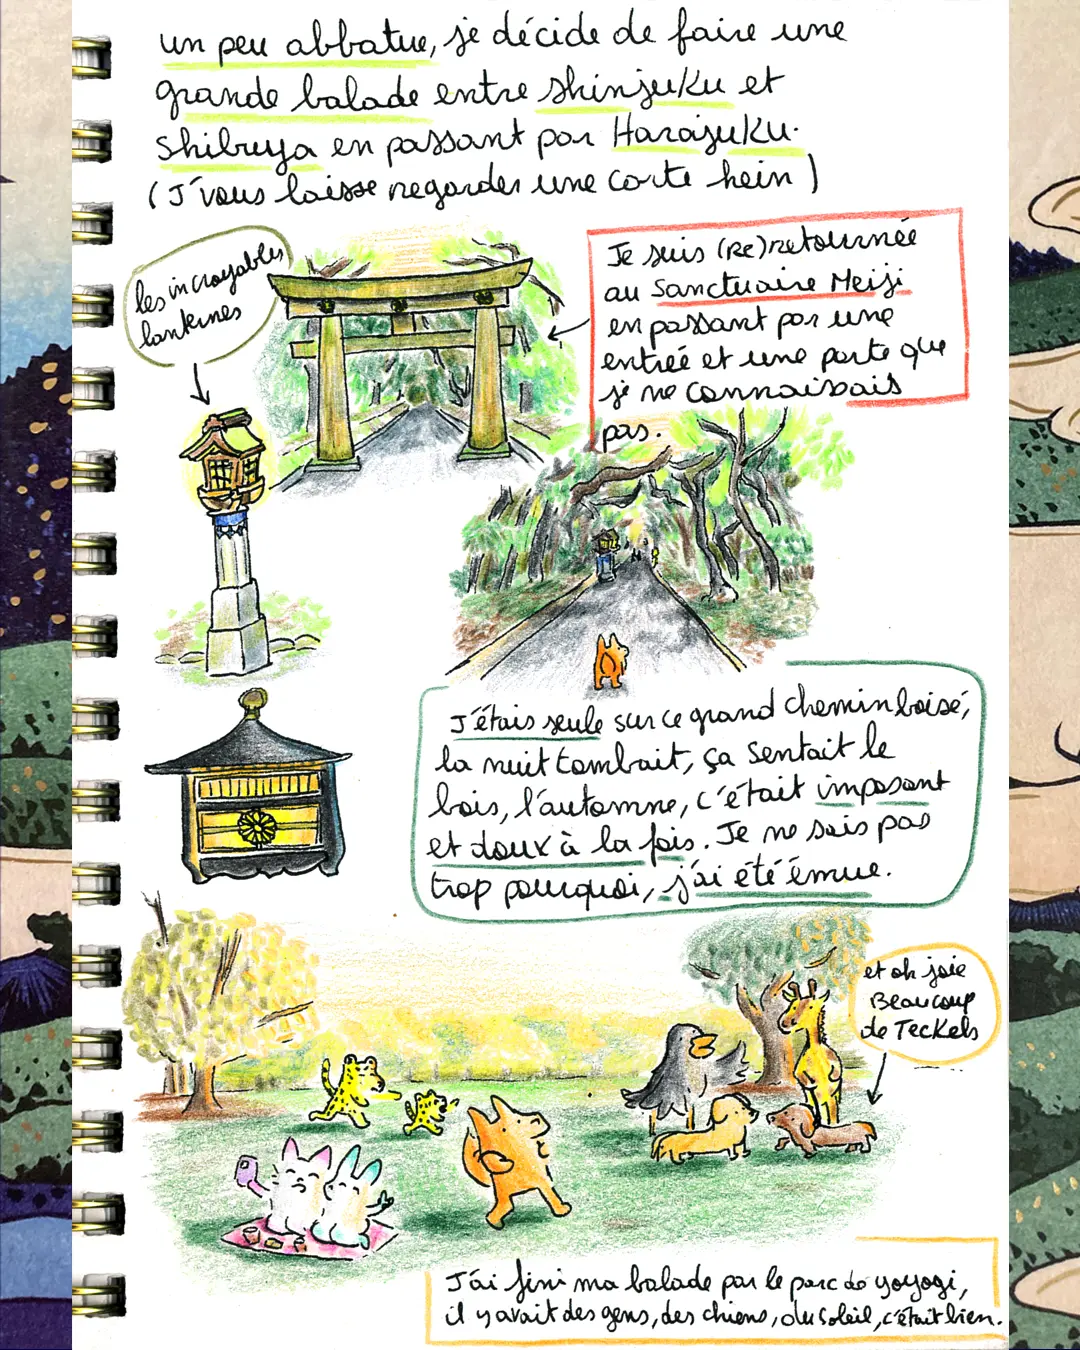 un peu abbatue, je décide de faire une
grande balade entre Shinjuku et
Shibuya en passant par Harajuku.
(J'vous laisse regarder une carte hein)
les incroyables
lanternes
Je suis (Re)retournée
au Sanctuaire Meiji
en passant par une
entrée et une porte que
je ne connaissais
pas.
J'étais seule sur ce grand chemin boisé,
la nuit tombait, ça sentait le
bois, l'automne, c'était imposant
et doux à la fois. Je ne sais pas
trop pourquoi, j'ai été émue.
et oh joie
Beaucoup
de Teckels
J'ai fini ma balade par le parc de yoyogi,
il y avait des gens, des chiens, du soleil, c'était bien.